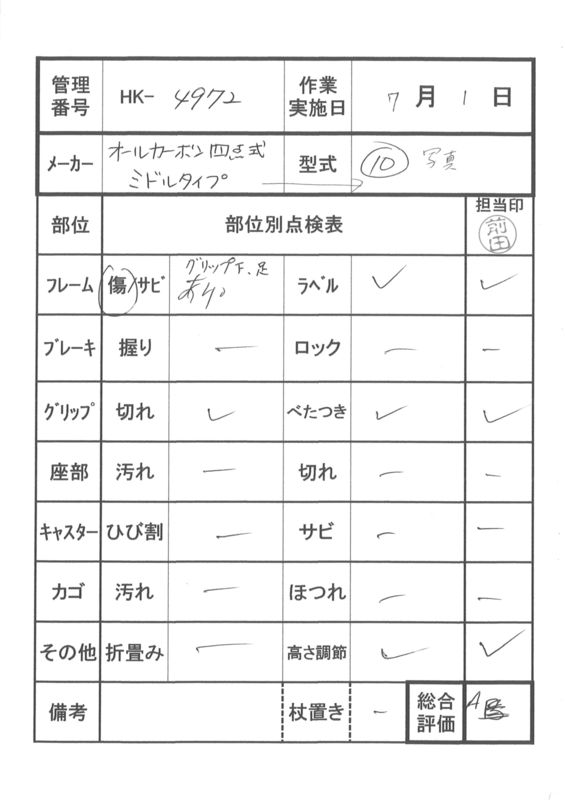 管理番号 HK- 4972 作業実施日 7月1日
メーカー オールカーボン四点式 ミドルタイプ 型式 10 写真
部位 部位別点検表 担当印 前田
フレーム 傷/サビ グリップ下、足 あり。 ラベル ✓ ✓
ブレーキ 握り ー ロック ー ー
グリップ 切れ ✓ べたつき ✓ ✓
座部 汚れ ー 切れ ー ー
キャスター ひび割 ー サビ ー ー
カゴ 汚れ ー ほつれ ー ー
その他 折畳み ー 高さ調節 ✓ ✓
備考 杖置き ー 総合評価 A